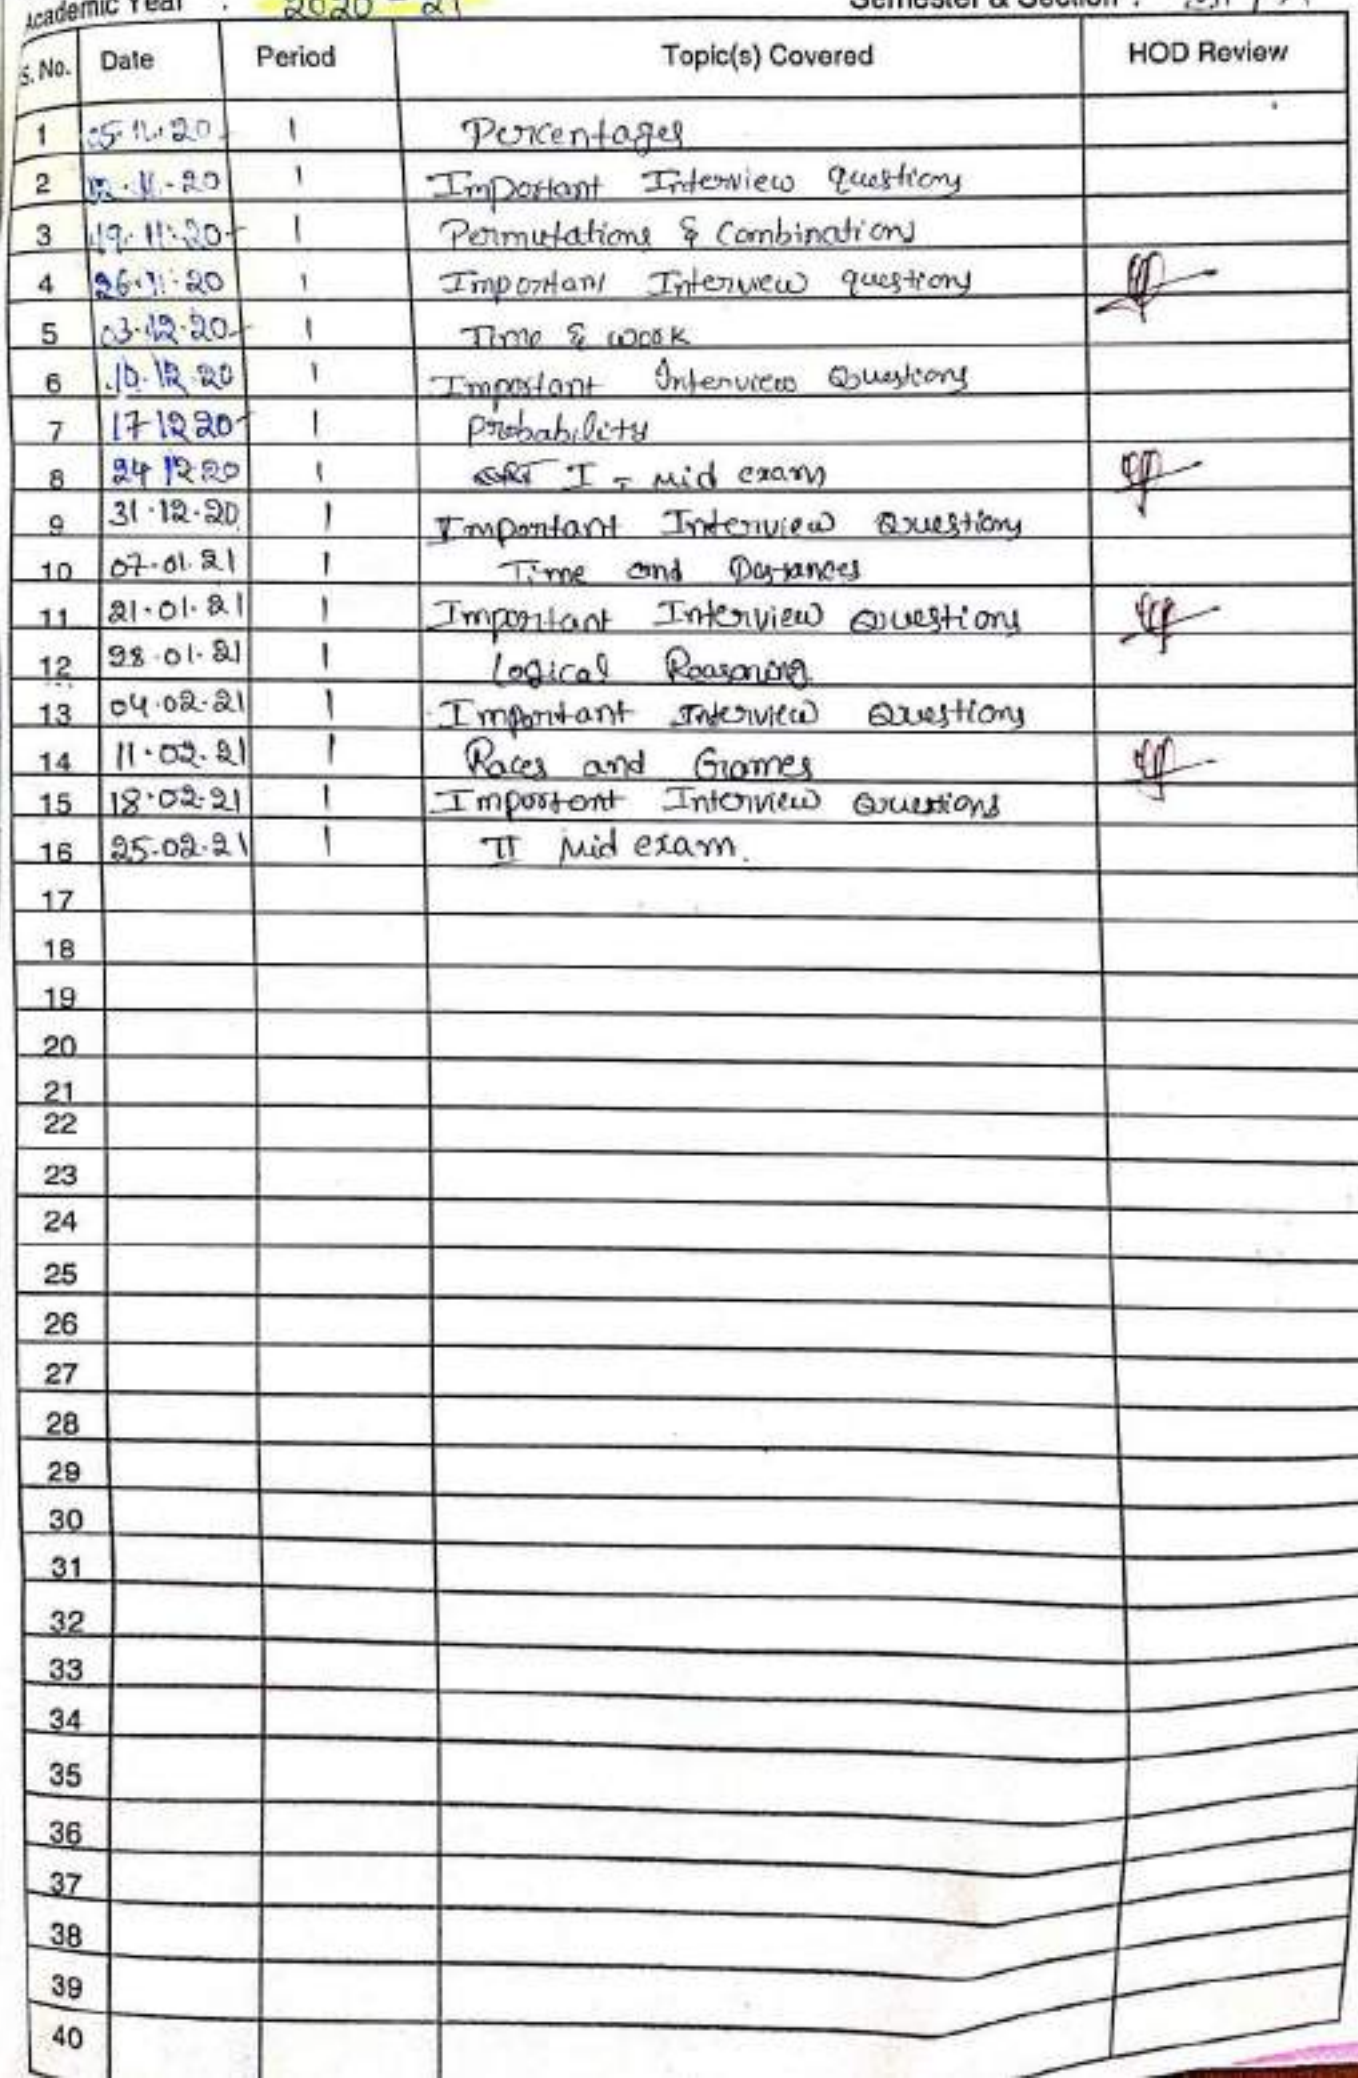 Academic Year : 2020 - 21 Semester & Section :
S. No. Date Period Topic(s) Covered HOD Review
1 05.11.20 1 Percentages
2 12.11.20 1 Important Interview questions
3 19.11.20 1 Permutations & Combinations
4 26.11.20 1 Important Interview questions
5 03.12.20 1 Time & work
6 10.12.20 1 Important Interview Questions
7 17 12 20 1 Probability
8 24 12 20 1 I - Mid exam
9 31.12.20 1 Important Interview Questions
10 07.01.21 1 Time and Distances
11 21.01.21 1 Important Interview Questions
12 28.01.21 1 Logical Reasoning
13 04.02.21 1 Important Interview Questions
14 11.02.21 1 Races and Games
15 18.02.21 1 Important Interview Questions
16 25.02.21 1 II Mid exam.
17
18
19
20
21
22
23
24
25
26
27
28
29
30
31
32
33
34
35
36
37
38
39
40